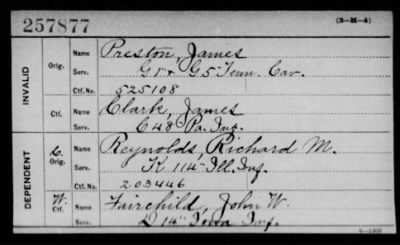 257877 (3-M-4)
INVALID
Orig.
Name Preston, James
Serv. G 1 & G 5 Tenn. Cav.
Ctf. No. 525108
Ctf.
Name Clark, James
Serv. C 48 Pa. Inf.
DEPENDENT
Orig.
Name Reynolds, Richard M.
Serv. K. 114" Ill. Inf.
Ctf. No. 203446
W. Ctf.
Name Fairchild, John W.
Serv. D 14" Iowa Inf.